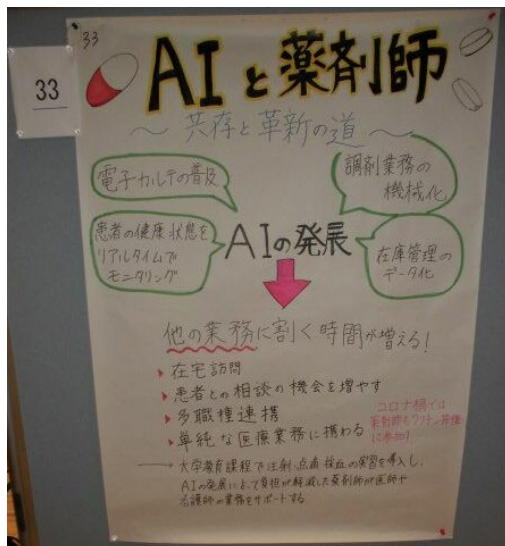 33
33
AIと薬剤師
～共存と革新の道～
電子カルテの普及
調剤業務の
機械化
患者の健康状態を
リアルタイムで
モニタリング
AIの発展
在庫管理の
データ化
他の業務に割く時間が増える!
在宅訪問
患者との相談の機会を増やす
多職種連携
単純な医療業務に携わる
コロナ禍では
薬剤師もワクチン接種
に参加!
→大学教育課程で注射、点滴、採血の実習を導入し、
AIの発展によって負担が軽減した薬剤師が医師や
看護師の業務をサポートする